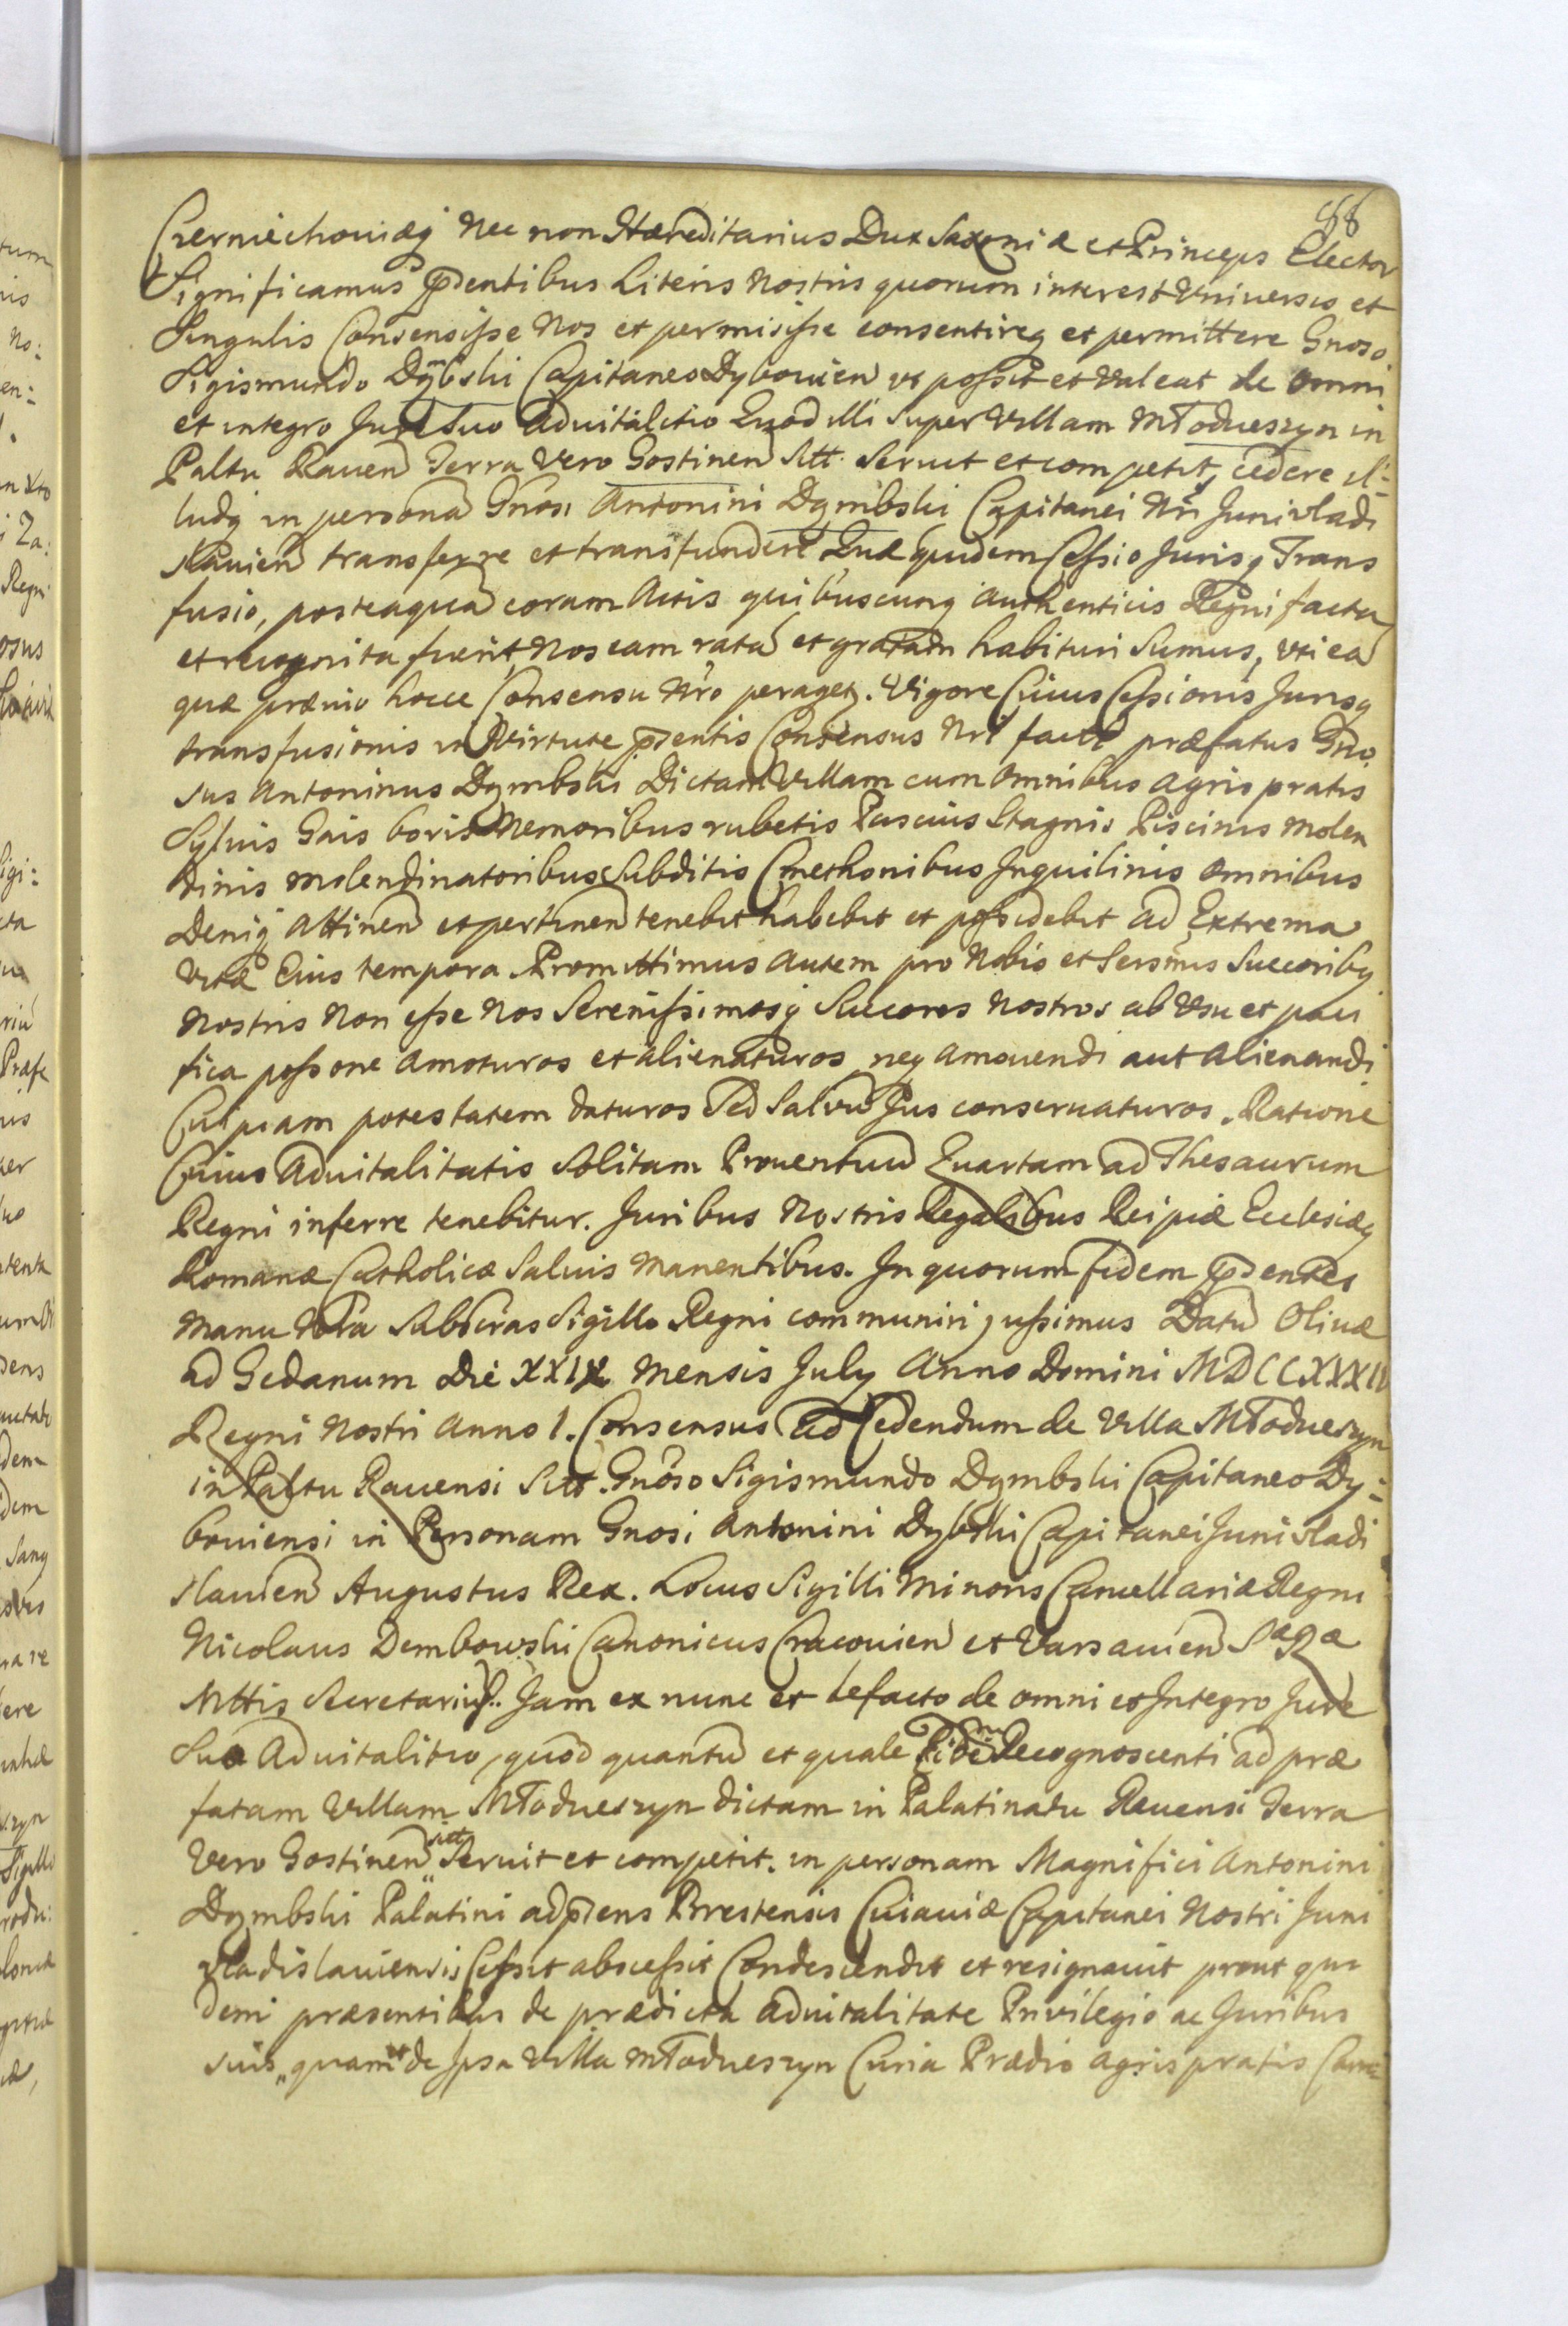 88
Czerniechoviæq Nec non Hæreditarius Dux Saxoniæ et Princeps Elector
Significamus pñdentibus Literis Nostris quorum interest Vniversis et
Singulis Consensisse Nos et permisisse consentireq et permittere Gnoso
Sigismundo Dymbski Capitaneo Dybovien vt possit et Valeat de omni
et integro Jure Suo Advitalitio Quod illi super Villam Młodueszyn in
Paltu Raven Terra Vero Gostinen Sitt. Servit et competit, cedere il-
ludq in persona Gnosi Antonini Dymbski Capitanei Nri Junivladi
slavien transferre et transfundere Quæ quidem Cessio Jurisq Trans
fusio, posteaqua coram Actis quibuscunq Authenticis Regni facta
et recognita fuerit, Nos eam rata et gratam habituri Sumus, vti ea
quæ prævio hocce Consensu Nro peraget. Vigore Cuius Cessionis Jurisq
transfusionis in Virtute pñdentis Consensus Nri factæ præfatus Gno
sus Antoninus Dymbski Dictam Villam cum Omnibus agris pratis
Sylvis Gais boris Nemoribus rubetis Pascuis Stagnis Piscinis molen
dinis molendinatoribus Subditis Cmethonibus Inquilinis Omnibus
Deniq Attinen et pertinen tenebit habebit et possidebit ad Extrema
Vitæ Eius tempora Promittimus autem pro Nobis et Sersmis Succoribq
Nostris Non esse Nos Serenissimosq Succores Nostros ab Vsu et paci
fica possone Amoturos et alienaturos neq Amovendi aut Alienandi
Cuipiam potestatem daturos Sed Salvu Jus conservaturos. Ratione
Cuius Advitalitatis Solitam Proventuu Quartam ad Thesaurum
Regni inferre tenebitur. Juribus Nostris Regalibus Reipcæ Ecclesiæq
Romanæ Catholicæ Salvis Manentibus. In quorum fidem pñdentes
Manu Nra Subscras Sigillo Regni communiri jussimus Datu Olivæ
ad Gedanum Die XXIX Mensis July Anno Domini MDCCXXXIV
Regni Nostri Anno 1. Consensus ad Cedendum de Villa Młodueszyn
in Paltu Ravensi Sitt. Gnoso Sigismundo Dymbski Capitaneo Dy-
boviensi in Personam Gnosi Antonini Dybski Capitanei Junivladi
slavien Augustus Rex. Locus Sigilli Minoris Cancellariæ Regni
Nicolaus Dembowski Canonicus Cracovien et Varsavien S æ R æ
Mttis Secretarius. Jam ex nunc et defacto de omni et Integro Jure
Suo Advitalitio, quod quantu et quale Sibi Recognoscenti ad præ
fatam Villam Młodueszyn dictam in Palatinatu Ravensi Terra
Vero Gostinen sitt. Servit et competit. in personam Magnifici Antonini
Dymbski Palatini ad pñdens Brrestensis Cuiaviæ Capitanei Nostri Juni
vladislaviensis Cessit abscessit Condescendit et resignavit prout qui
dem præsentibus de prædicta advitalitate Privilegio ac Juribus
suis, quam et de Ipsa Villa Młodueszyn Curia Prædio agris pratis